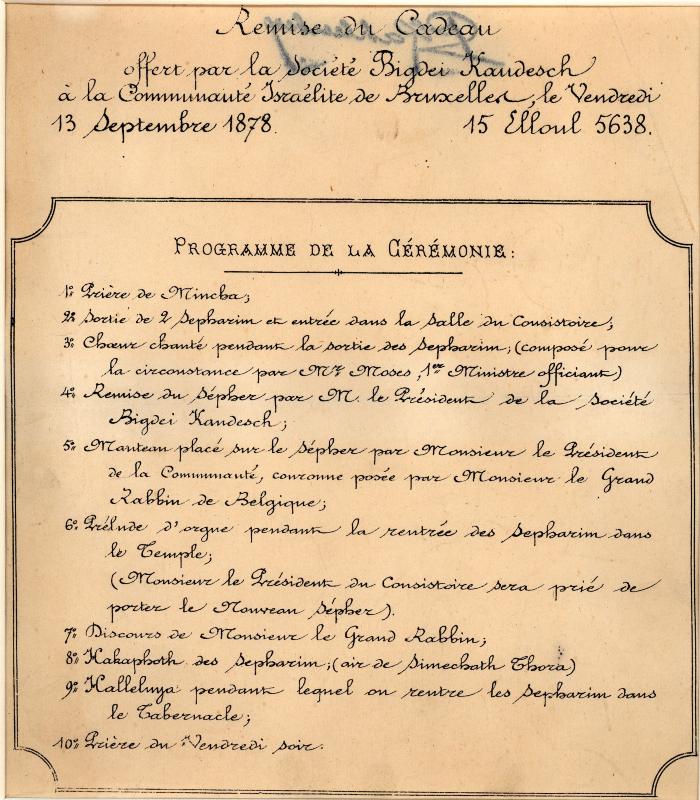 Remise du Cadeau
offert par la Société Bigdei Kaudesch
à la Communauté Israélite de Bruxelles, le Vendredi
13 Septembre 1878. 15 Elloul 5638.
PROGRAMME DE LA CÉRÉMONIE:
1º Prière de Mincha;
2º Sortie de 2 Sepharim et entrée dans la salle du Consistoire;
3º Chœur chanté pendant la sortie des Sepharim; (composé pour
la circonstance par Mr Moses, 1er Ministre officiant)
4º Remise du Sépher par M. le Président de la Société
Bigdei Kaudesch;
5º Manteau placé sur le Sépher par Monsieur le Président
de la Communauté, couronne posée par Monsieur le Grand
Rabbin de Belgique;
6º Prélude d'orgue pendant la rentrée des Sepharim dans
le Temple;
(Monsieur le Président du Consistoire sera prié de
porter le Nouveau Sépher).
7º Discours de Monsieur le Grand Rabbin;
8º Hakaphoth des Sepharim; (air de Simechath Thora)
9º Halleluya pendant lequel on rentre les Sepharim dans
le Tabernacle;
10º Prière du Vendredi soir.